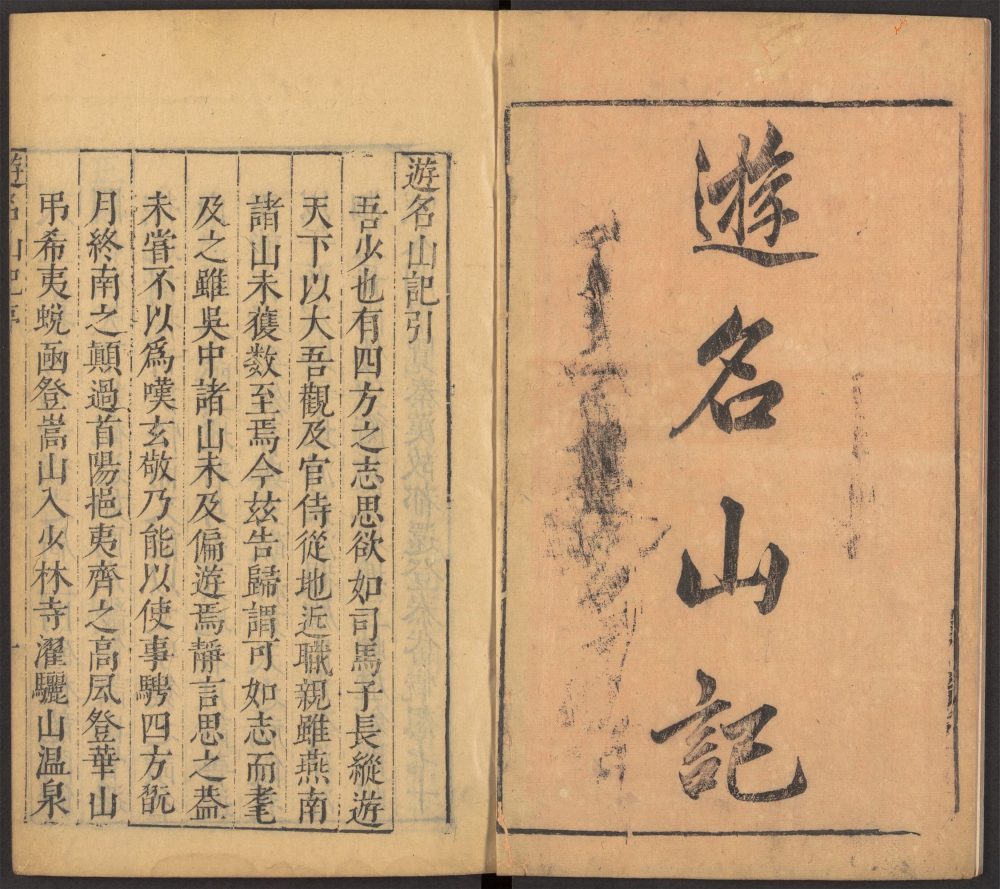 遊名山記
遊名山記引
吾少也有四方之志思欲如司馬子長縱遊
天下以大吾觀及官侍從地近職親雖燕南
諸山未獲数至焉今玆告歸謂可如志而耄
及之雖吳中諸山未及偏遊焉靜言思之葢
未甞不以爲嘆玄敬乃能以使事騁四方翫
月終南之顛過首陽挹夷齊之高風登華山
弔希夷蛻凾登嵩山入少林寺濯驪山温泉
遊名山記